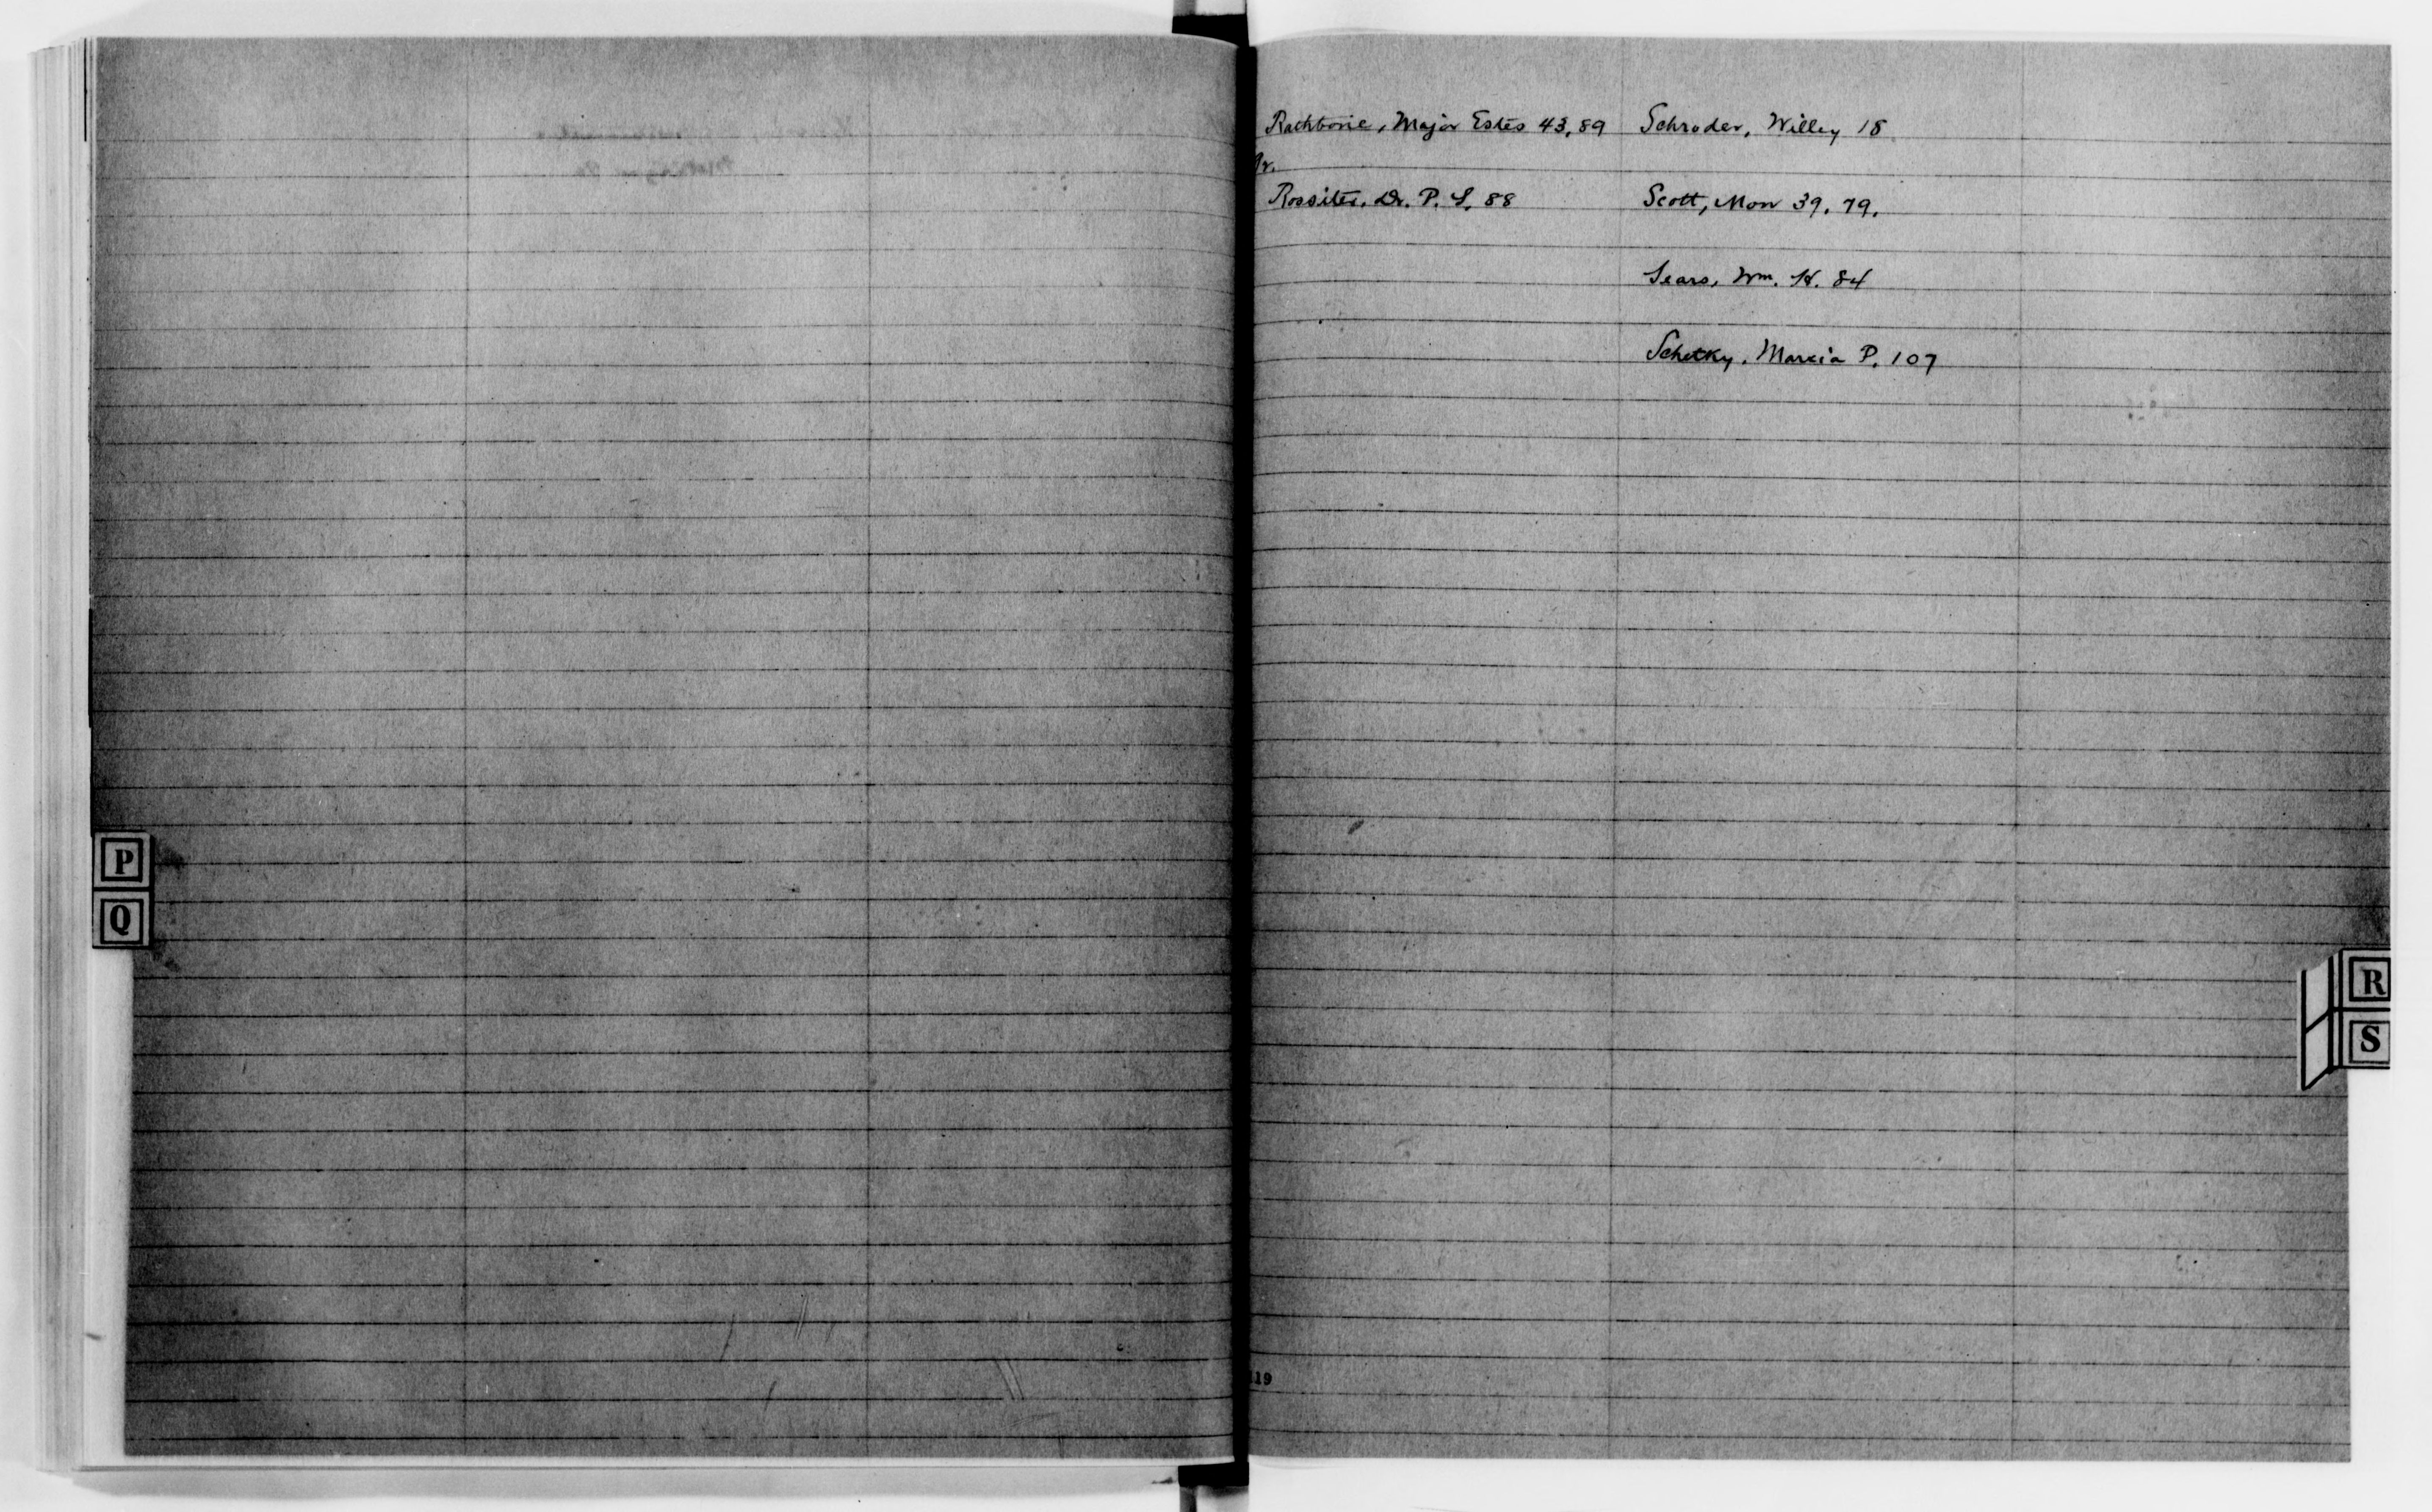 Rathbone, Major Estes 43, 89
Rossiter, Dr. P. S. 88
Schroder, Willey 18
Scott, Mon 39. 79.
Sears, Wm. H. 84
Schetky, Marcia P. 107
P
Q
R
S